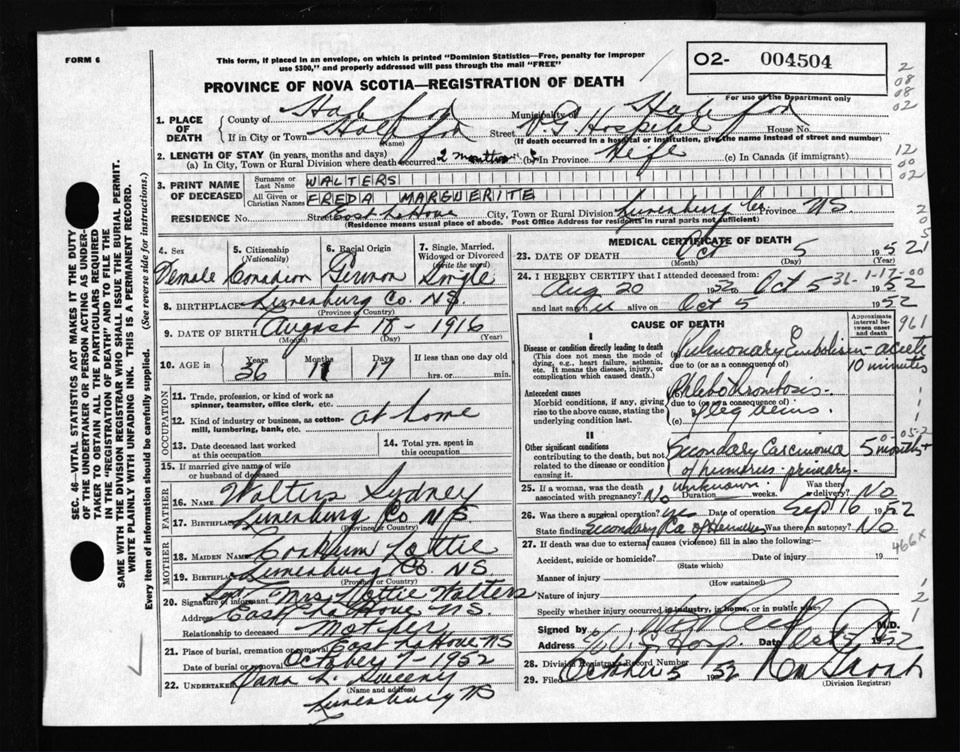 FORM 6
This form, if placed in an envelope, on which is printed "Dominion Statistics—Free, penalty for improper
use $300," and properly addressed will pass through the mail "FREE"
O2- 004504
For use of the Department only
2
08
08
02
PROVINCE OF NOVA SCOTIA—REGISTRATION OF DEATH
1. PLACE OF DEATH
County of Halifax Municipality of Halifax
If in City or Town Halifax (Name) Street V.G. Hospital House No.
(If death occurred in a hospital or institution, give the name instead of street and number)
2. LENGTH OF STAY (in years, months and days)
(a) In City, Town or Rural Division where death occurred 2 months (b) In Province Life (c) In Canada (if immigrant)
12
00
02
3. PRINT NAME OF DECEASED
Surname or Last Name WALTERS
All Given or Christian Names FREDA MARGUERITE
RESIDENCE No. Street East LaHave City, Town or Rural Division Lunenburg Co. Province NS.
(Residence means usual place of abode. Post Office Address for residents in rural parts not sufficient)
4. Sex Female
5. Citizenship (Nationality) Canadian
6. Racial Origin German
7. Single, Married, Widowed or Divorced (Write the word) Single
8. BIRTHPLACE Lunenburg Co. NS.
(Province or Country)
9. DATE OF BIRTH August 18 - 1916
(Month) (Day) (Year)
10. AGE in Years 36 Months 1 Days 17 If less than one day old hrs. or min.
OCCUPATION
11. Trade, profession, or kind of work as spinner, teamster, office clerk, etc.
12. Kind of industry or business, as cotton-mill, lumbering, bank, etc. at home
13. Date deceased last worked at this occupation
14. Total yrs. spent in this occupation
15. If married give name of wife or husband of deceased
FATHER
16. NAME Walters Sydney
17. BIRTHPLACE Lunenburg Co NS
(Province or Country)
MOTHER
18. MAIDEN NAME Lottie
19. BIRTHPLACE Lunenburg Co. NS.
(Province or Country)
20. Signature of informant Mrs Lottie Walters
Address East LaHave NS.
Relationship to deceased Mother
21. Place of burial, cremation or removal East LaHave NS
Date of burial or removal October 7 - 1952
22. UNDERTAKER Dana L. Sweeny
(Name and address)
Lunenburg NS
MEDICAL CERTIFICATE OF DEATH
23. DATE OF DEATH Oct 5 1952
(Month) (Day) (Year)
24. I HEREBY CERTIFY that I attended deceased from:
Aug 20 1952 to Oct 5 1952
and last saw alive on Oct 5 1952
CAUSE OF DEATH
Approximate interval between onset and death
I
Disease or condition directly leading to death
(This does not mean the mode of dying, e.g., heart failure, asthenia, etc. It means the disease, injury, or complication which caused death.)
Pulmonary Embolism - acute
due to (or as a consequence of)
10 minutes
Antecedent causes
Morbid conditions, if any, giving rise to the above cause, stating the underlying condition last.
Phlebothrombosis
due to (or as a consequence of)
of leg veins.
(c)
II
Other significant conditions
contributing to the death, but not related to the disease or condition causing it.
Secondary Carcinoma
of humerus - primary
unknown.
5 months +
25. If a woman, was the death associated with pregnancy? No Duration weeks. Was there delivery? No
26. Was there a surgical operation? yes Date of operation Sept 16 1952
State findings Secondary Ca of Humerus Was there an autopsy? No
27. If death was due to external causes (violence) fill in also the following:
Accident, suicide or homicide? Date of injury 19
(State which)
Manner of injury
(How sustained)
Nature of injury
Specify whether injury occurred in industry, in home, or in public place
Signed by M.D.
Address V.G. Hosp. Date Oct 5 1952
28. Division Registrar's Record Number
29. Filed October 5 1952
(Division Registrar)
961
466X
SEC. 46—VITAL STATISTICS ACT MAKES IT THE DUTY
OF THE UNDERTAKER OR PERSON ACTING AS UNDER-
TAKER TO OBTAIN ALL THE PARTICULARS REQUIRED
IN THE "REGISTRATION OF DEATH" AND TO FILE THE
SAME WITH THE DIVISION REGISTRAR WHO SHALL ISSUE THE BURIAL PERMIT.
WRITE PLAINLY WITH UNFADING INK. THIS IS A PERMANENT RECORD.
Every item of information should be carefully supplied. (See reverse side for instructions.)